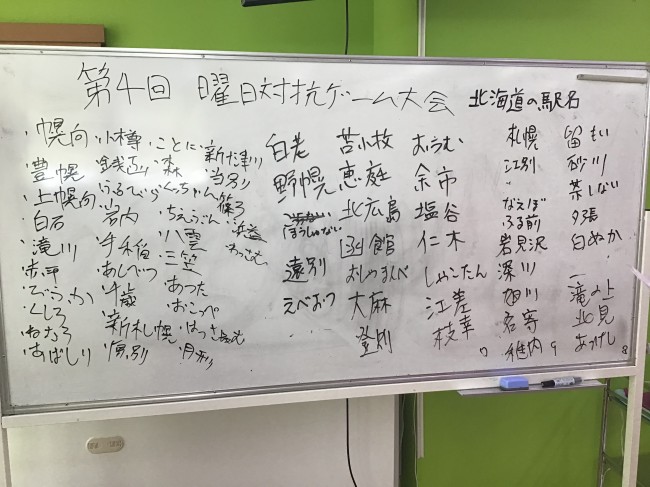 第4回 曜日対抗ゲーム大会 北海道の駅名
・幌向
・豊幌
・上幌向
・白石
・滝川
・赤平
・くしろ
・ねむろ
・あばしり
・小樽
・銭函
・ふるびら
・岩内
・手稲
・あしべつ
・千歳
・新札幌
・ことに
・森
・くっちゃん
・ちえぶん
・八雲
・三笠
・あつた
・おこっぺ
・月形
・新十津川
・当別
・浜益
・わっさむ
白老
野幌
遠別
えべおつ
苫小牧
恵庭
北広島
函館
おしゃまんべ
大麻
登別
おうむ
余市
塩谷
仁木
しゃこたん
江差
枝幸
札幌
江別
〃
なえぼ
岩見沢
深川
旭川
名寄
稚内 9
留もい
砂川
茶しない
夕張
白ぬか
滝の上
北見
あつけし 8